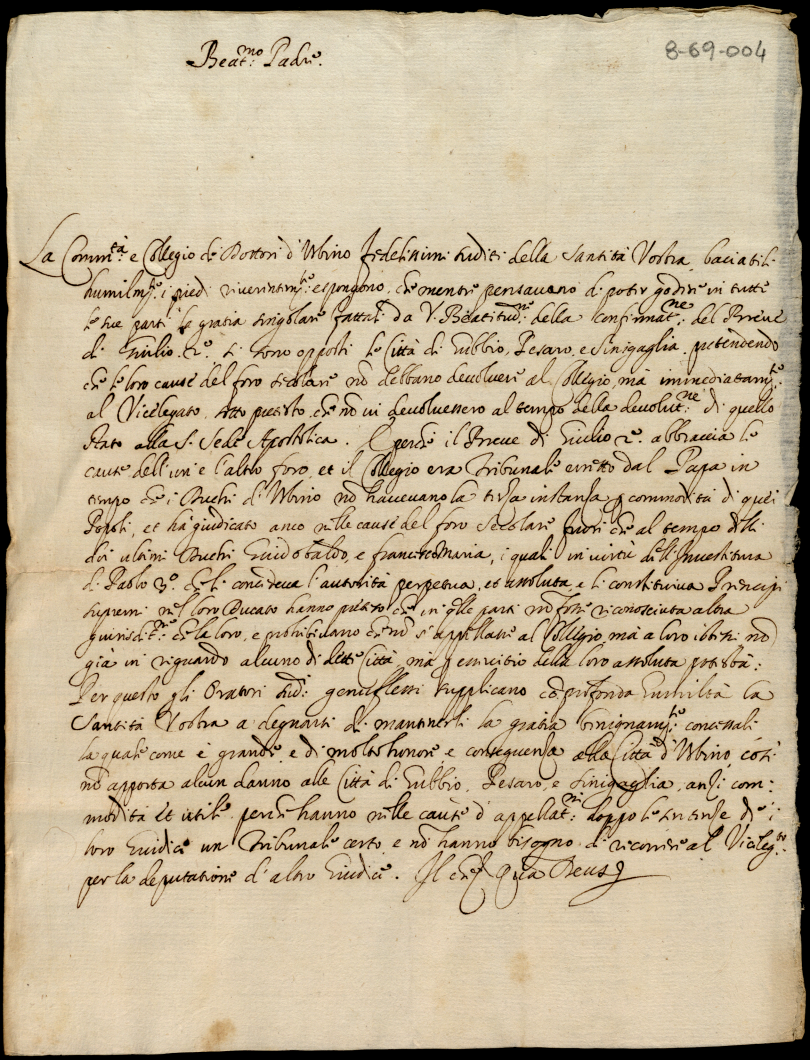 8-69-004
Beat.mo Padre.
La Comm.tà e Collegio de Dottori d'Urbino fedelissimi sudditi della Santità Vostra, baciatili
humilm.te i piedi riverentem.te espongono, che mentre pensavano di poter godere in tutte
le sue parti la gratia singolare fattali da V. Beatitud.ne della confirmat.ne del Breve
di Giulio 2.o si sono opposti le Città di Gubbio, Pesaro, e Sinigaglia. pretendendo
che le loro cause del foro secolare nõ debbano devolversi al Collegio, mà immediatam.te
al Vicelegato, sotto pretesto, che nõ vi devolvessero al tempo della devolut.ne di quello
Stato alla S. Sede Apostolica. E perche il Breve di Giulio 2.o abbraccia le
cause dell'un'e l'altro foro, et il Collegio era Tribunale eretto dal Papa in
tempo che i Duchi di Urbino nõ havevano la terza instanza p commodità di quei
Popoli, et hà giudicato anco nelle cause del foro Secolare fuori che al tempo delli
doi ultimi Duchi Guidobaldo, e Francesco Maria, i quali in virtù dell'Investitura
di Paolo 3.o che li concedeva l'autorità perpetua, et assoluta, e li constituiva Principi
supremi nel loro Ducato hanno preteso che in esse parti nõ fosse riconosciuta altra
giurisd.ne che la loro, e prohibivano che nõ si appellasse al Collegio, mà a loro istessi nõ
già in riguardo alcuno di dette Città, mà p essercitio della loro assoluta potestà:
Per questo gli Oratori sud.i genuflessi supplicano cõ profonda humiltà la
Santità Vostra a degnarsi di mantenerli la gratia benignam.te concessali
la quale come è grande, e di molto honore e conseguenza alla Città d'Urbino, così
nõ apporta alcun danno alle Città di Gubbio, Pesaro, e Sinigaglia, anzi com-
modità et utile, perche hanno nelle cause d'appellat.ni doppo le sentenze de i
loro Giudici un Tribunale certo, e nõ hanno bisogno di ricorrere al Viceleg.to
per la deputatione d'altro Giudice. Il che Quam Deus